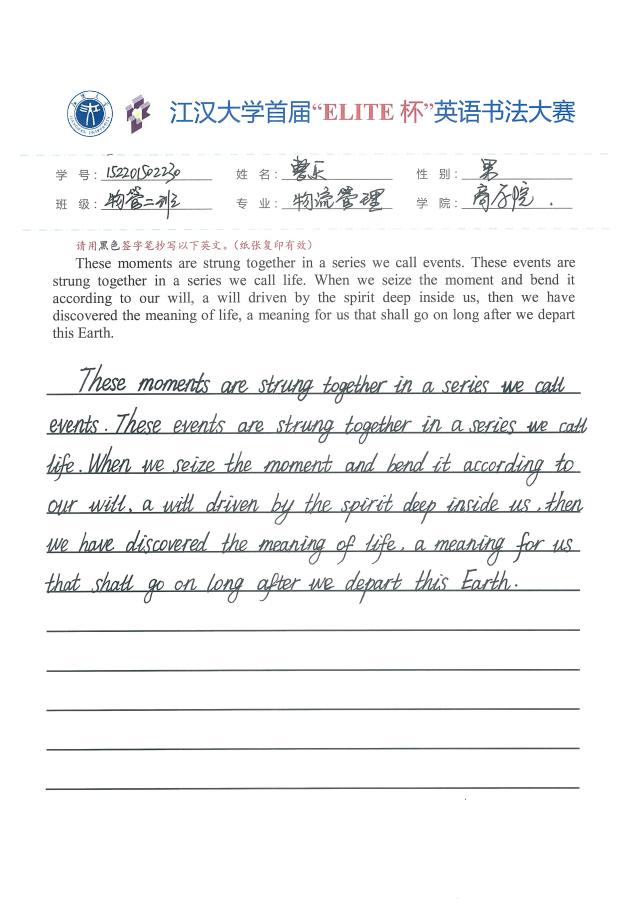 江汉大学首届“ELITE 杯”英语书法大赛
学 号：152201502230 姓 名： 乐 性 别：男
班 级：物管二班 专 业：物流管理 学 院：商学院.
请用黑色签字笔抄写以下英文。（纸张复印有效）
These moments are strung together in a series we call events. These events are
strung together in a series we call life. When we seize the moment and bend it
according to our will, a will driven by the spirit deep inside us, then we have
discovered the meaning of life, a meaning for us that shall go on long after we depart
this Earth.
These moments are strung together in a series we call
events. These events are strung together in a series we call
life. When we seize the moment and bend it according to
our will, a will driven by the spirit deep inside us, then
we have discovered the meaning of life, a meaning for us
that shall go on long after we depart this Earth.